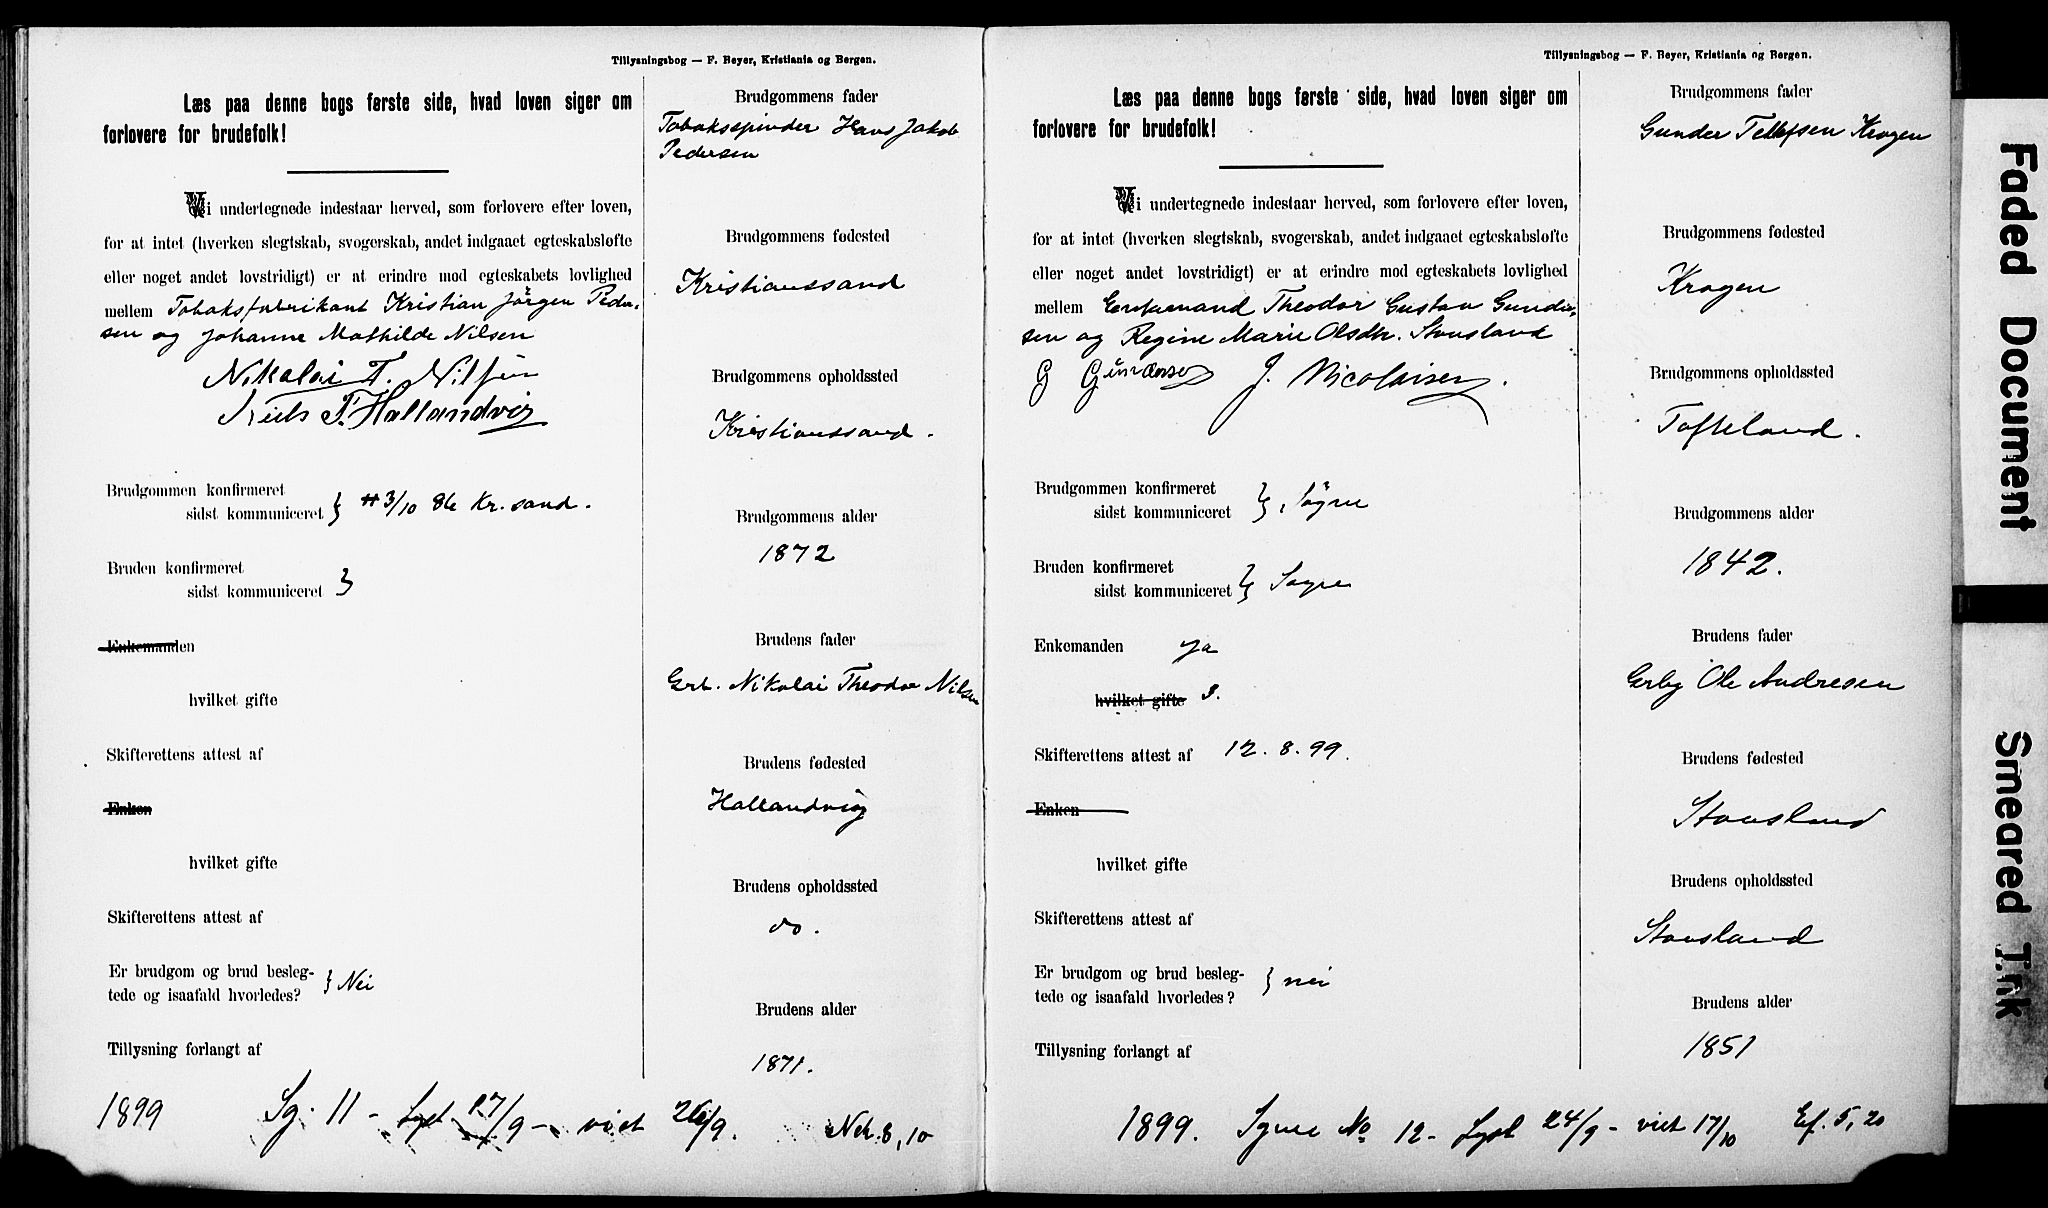 Tillysningsbog — F. Beyer, Kristiania og Bergen.
Læs paa denne bogs første side, hvad loven siger om
forlovere for brudefolk!
Vi undertegnede indestaar herved, som forlovere efter loven,
for at intet (hverken slegtskab, svogerskab, andet indgaaet egteskabsløfte
eller noget andet lovstridigt) er at erindre mod egteskabets lovlighed
mellem Tobaksfabrikant Kristian Jörgen Peder-
sen og Johanne Mathilde Nilsen
Nikolai T. Nilsen
Niels T. Hallandvig
Brudgommen konfirmeret
sidst kommuniceret } 3/10 86 Kr.sand.
Bruden konfirmeret
sidst kommuniceret }
Enkemanden
hvilket gifte
Skifterettens attest af
Enken
hvilket gifte
Skifterettens attest af
Er brudgom og brud besleg-
tede og isaafald hvorledes? } Nei
Tillysning forlangt af
Brudgommens fader
Tobaksspinder Hans Jakob
Pedersen
Brudgommens fødested
Kristianssand
Brudgommens opholdssted
Kristianssand.
Brudgommens alder
1872
Brudens fader
Grb. Nikolai Theodor Nilsen
Brudens fødested
Hallandvig
Brudens opholdssted
do.
Brudens alder
1871.
1899 Sg. 11 - Lyst 17/9 - viet 26/9. 8,10
Tillysningsbog — F. Beyer, Kristiania og Bergen.
Læs paa denne bogs første side, hvad loven siger om
forlovere for brudefolk!
Vi undertegnede indestaar herved, som forlovere efter loven,
for at intet (hverken slegtskab, svogerskab, andet indgaaet egteskabsløfte
eller noget andet lovstridigt) er at erindre mod egteskabets lovlighed
mellem Enkemand Theodor Gustav Gunder-
sen og Regine Marie Olsdtr. Stousland
G Gundersen J. Nicolaisen.
Brudgommen konfirmeret
sidst kommuniceret } Søgne
Bruden konfirmeret
sidst kommuniceret } Sogne
Enkemanden ja
hvilket gifte 3.
Skifterettens attest af 12.8.99.
Enken
hvilket gifte
Skifterettens attest af
Er brudgom og brud besleg-
tede og isaafald hvorledes? } nei
Tillysning forlangt af
Brudgommens fader
Gunder Tellefsen Kragen
Brudgommens fødested
Kragen
Brudgommens opholdssted
Tofteland.
Brudgommens alder
1842.
Brudens fader
Ole Andresen
Brudens fødested
Stousland
Brudens opholdssted
Stousland
Brudens alder
1851
1899. Sgne No 12 - Lyst 24/9 - viet 17/10 Ef. 5,20
Faded Document
Smeared Ink